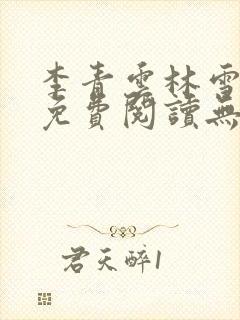 李青雲林雪
免費閱讀無
君天醉1